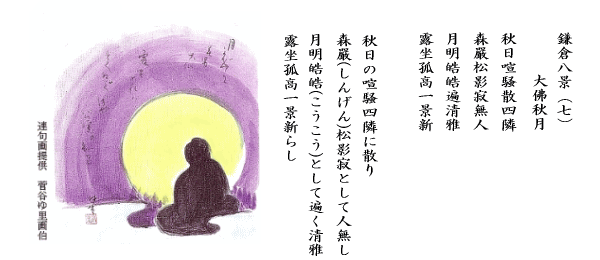 鎌倉八景（七）
大佛秋月
秋日喧騒散四隣
森嚴松影寂無人
月明皓皓遍清雅
露坐孤高一景新
秋日の喧騒四隣に散り
森嚴(しんげん)松影寂として人無し
月明皓皓(こうこう)として遍く清雅
露坐孤高一景新らし
連句画提供　菅谷ゆ里画伯